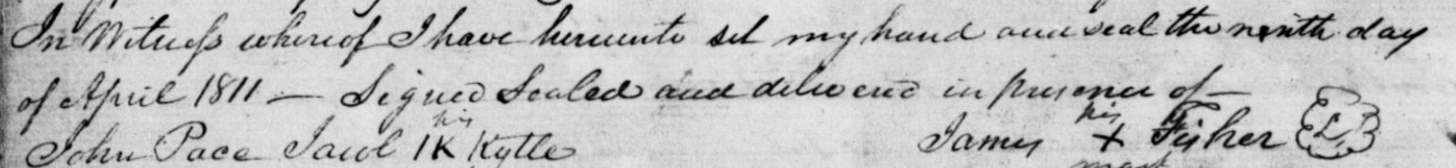 In Witness whereof I have hereunto set my hand and seal the ninth day
of April 1811 — Signed Sealed and delivered in presence of —
his his
John Pace Jacob IK Kytle James X Fisher
mark